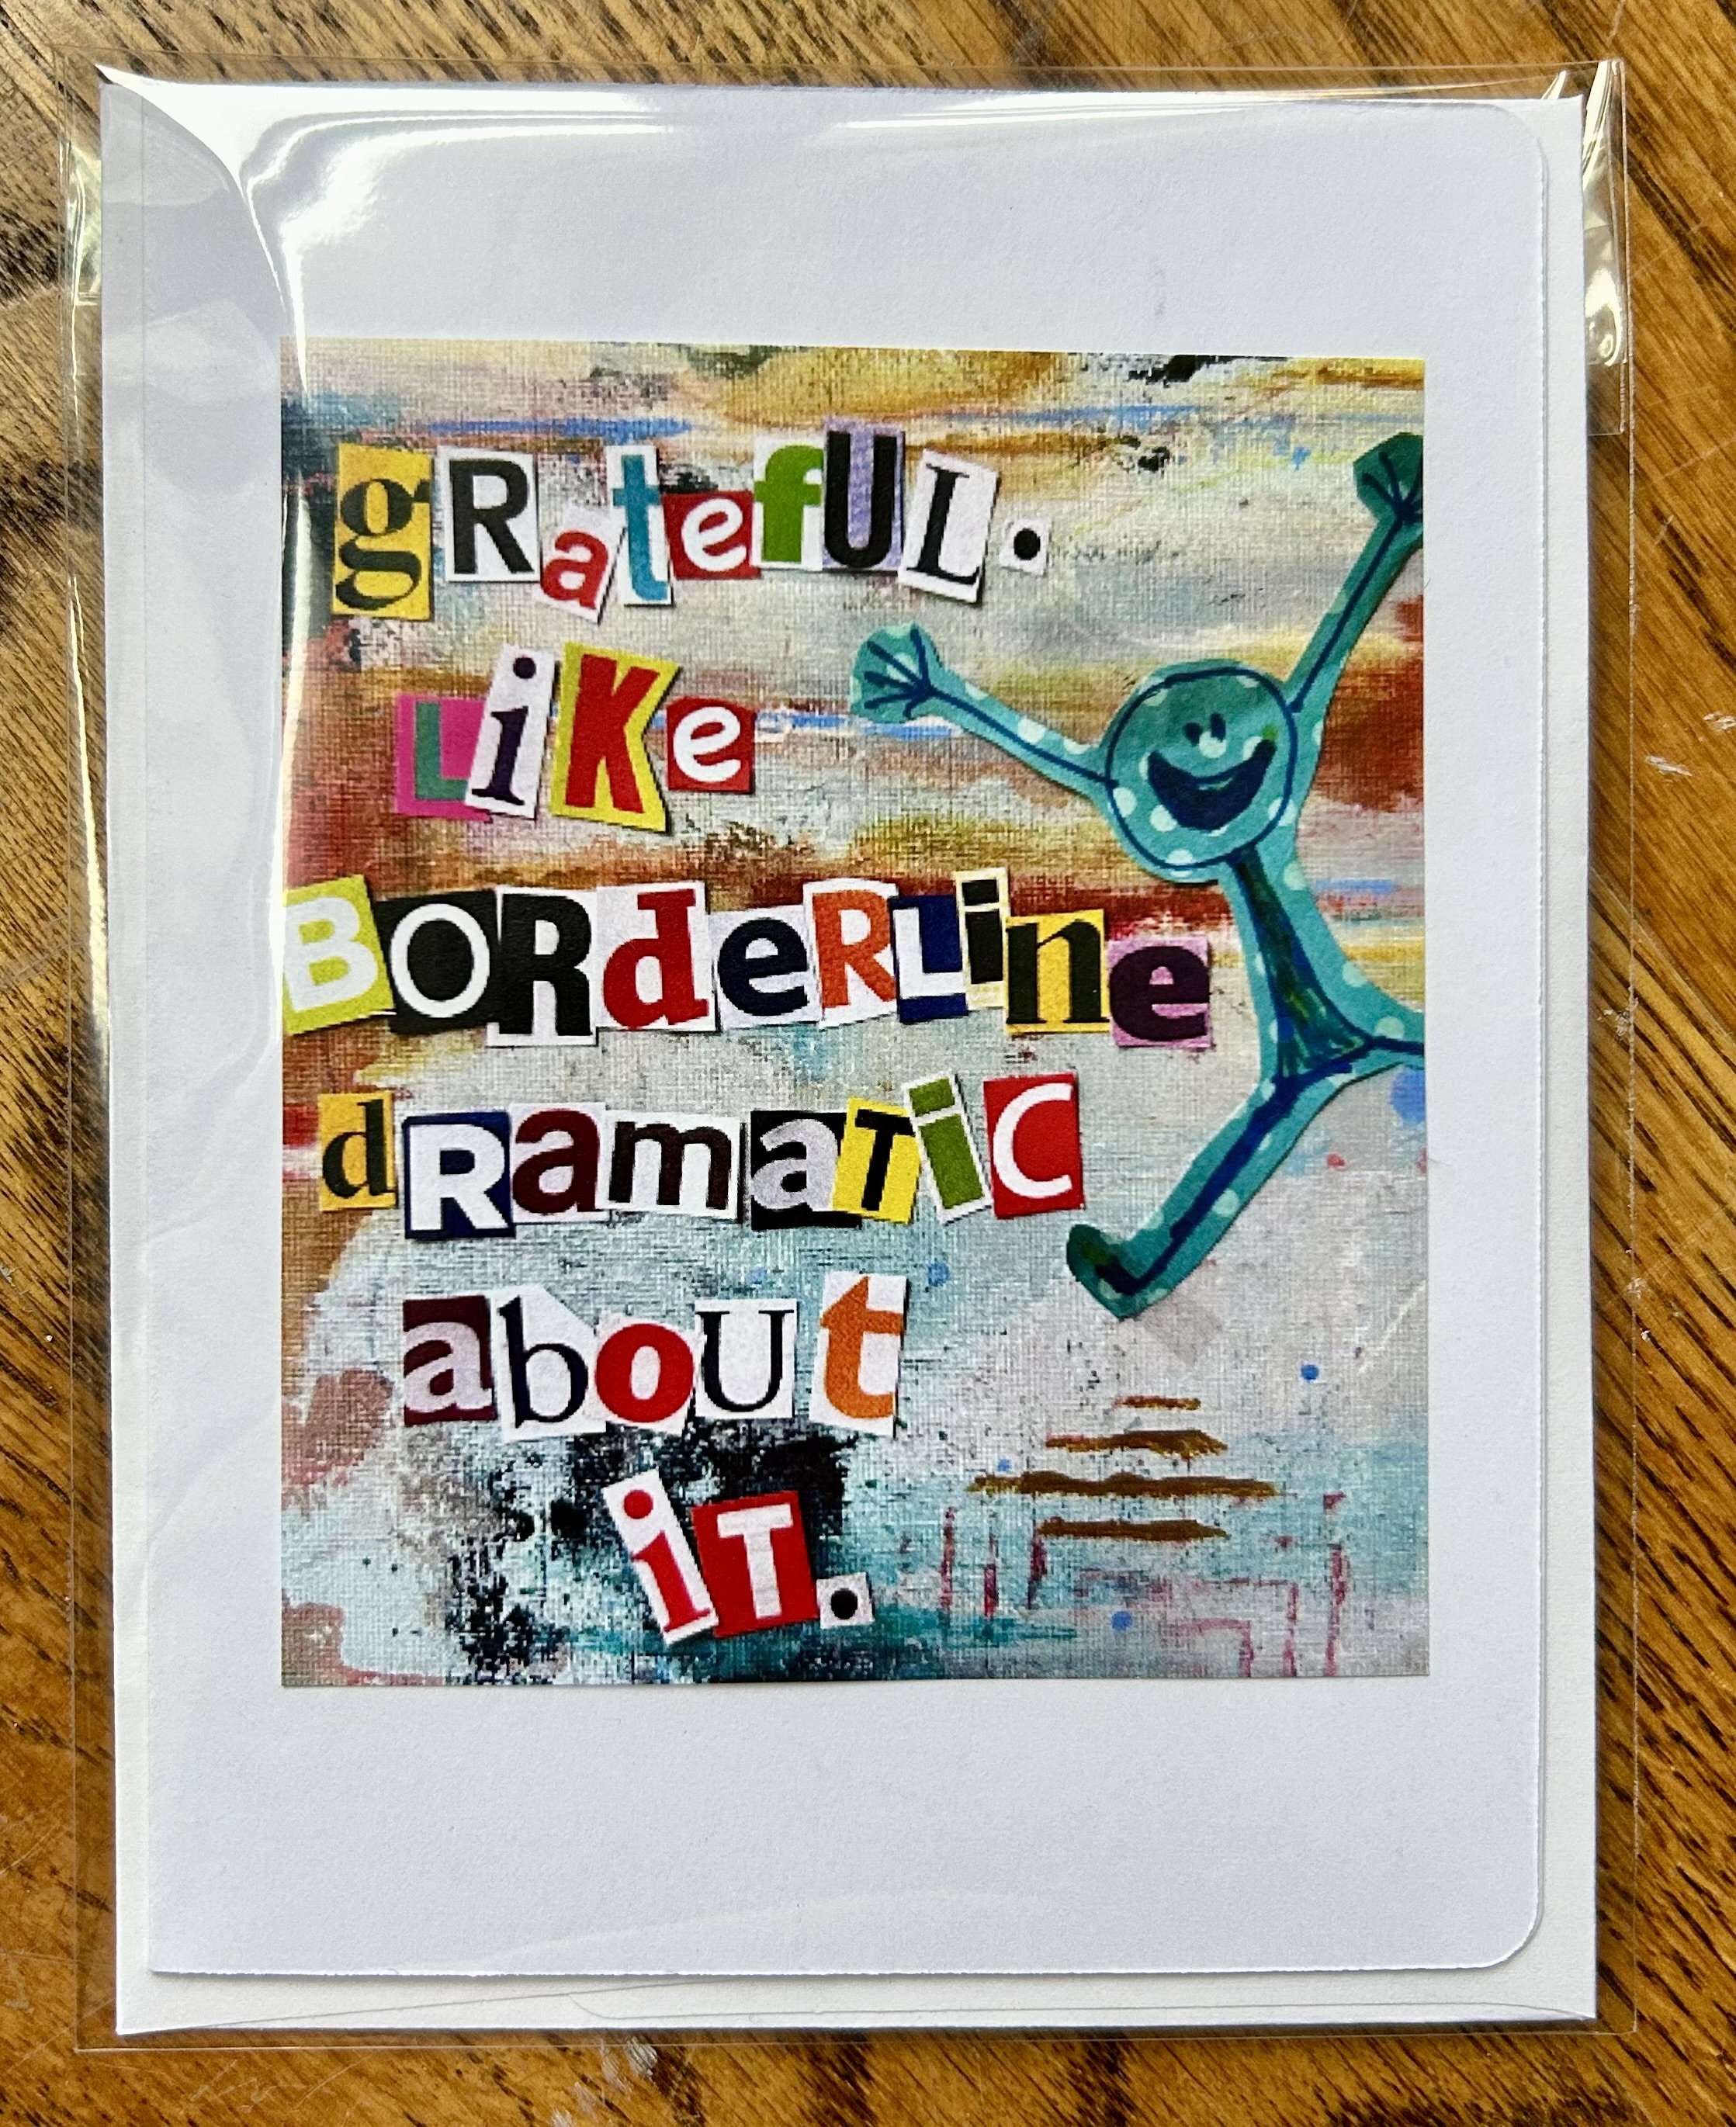 gRatefUL.
LiKe
BORdeRLine
dRamaTiC
aboUt
iT.